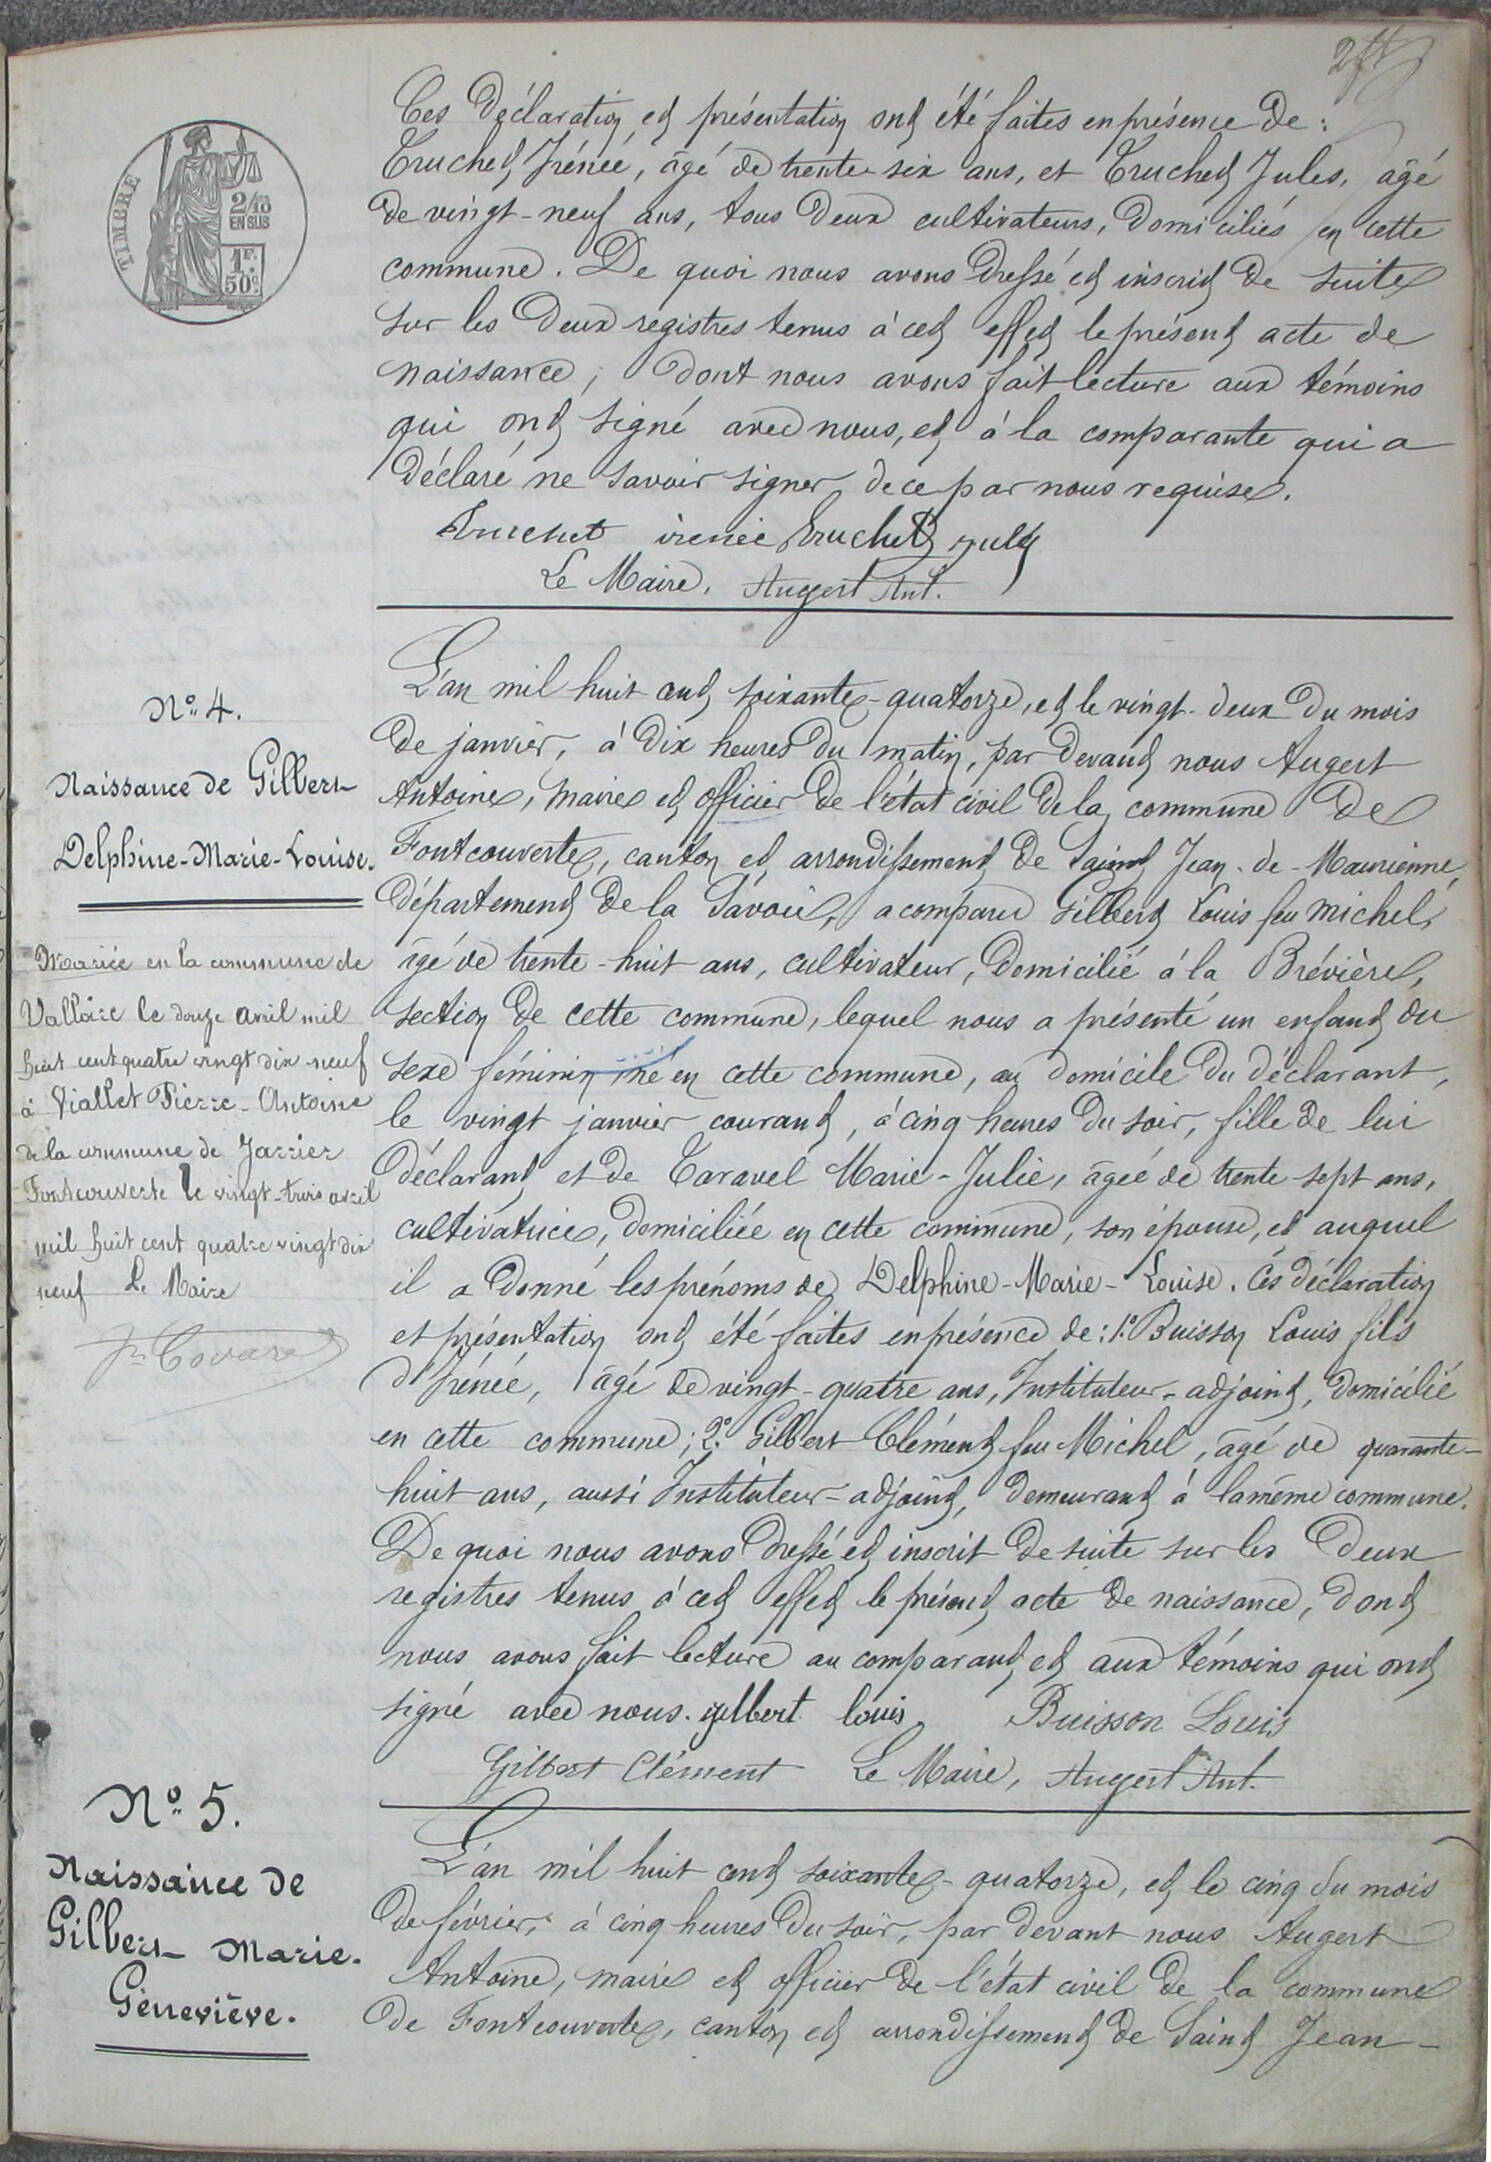 TIMBRE
2/10
EN SUS
1F.
50c.
Ces déclaration et présentation ont été faites en présence de :
Truchet Irénée, âgé de trente-six ans, et Truchet Jules, âgé
de vingt-neuf ans, tous deux cultivateurs, domiciliés en cette
commune. De quoi nous avons dressé et inscrit de suite
sur les deux registres tenus à cet effet le présent acte de
naissance, dont nous avons fait lecture aux témoins
qui ont signé avec nous, et à la comparante qui a
déclaré ne savoir signer, de ce par nous requise.
Truchet irenée Truchet jules
Le Maire, Augert Ant.
No 4.
Naissance de Gilbert
Delphine-Marie-Louise.
Mariée en la commune de
Valloire le douze avril mil
huit cent quatre vingt dix-neuf
à Viallet Pierre-Antoine
de la commune de Jarrier
Fontcouverte le vingt-trois avril
mil huit cent quatre vingt dix
neuf Le Maire
L'an mil huit cent soixante-quatorze, et le vingt-deux du mois
de janvier, à dix heures du matin, par devant nous Augert
Antoine, maire et officier de l'état civil de la commune de
Fontcouverte, canton et arrondissement de Saint Jean-de-Maurienne,
département de la Savoie, a comparu Gilbert Louis feu Michel,
âgé de trente-huit ans, cultivateur, domicilié à la Brévière,
section de cette commune, lequel nous a présenté un enfant du
sexe féminin né en cette commune, au domicile du déclarant,
le vingt janvier courant, à cinq heures du soir, fille de lui
déclarant et de Taravel Marie-Julie, âgée de trente-sept ans,
cultivatrice, domiciliée en cette commune, son épouse, et auquel
il a donné les prénoms de Delphine-Marie-Louise. Ces déclaration
et présentation ont été faites en présence de : 1o Buisson Louis fils
d'Irénée, âgé de vingt-quatre ans, Instituteur-adjoint, domicilié
en cette commune ; 2o Gilbert Clément feu Michel, âgé de quarante-
huit ans, aussi Instituteur-adjoint, demeurant à la même commune.
De quoi nous avons dressé et inscrit de suite sur les deux
registres tenus à cet effet le présent acte de naissance, dont
nous avons fait lecture au comparant et aux témoins qui ont
signé avec nous. gilbert louis Buisson Louis
Gilbert Clément Le Maire, Augert Ant.
No 5.
Naissance de
Gilbert Marie-
Géneviève.
L'an mil huit cent soixante-quatorze, et le cinq du mois
de février, à cinq heures du soir, par devant nous Augert
Antoine, maire et officier de l'état civil de la commune
de Fontcouverte, canton et arrondissement de Saint Jean-